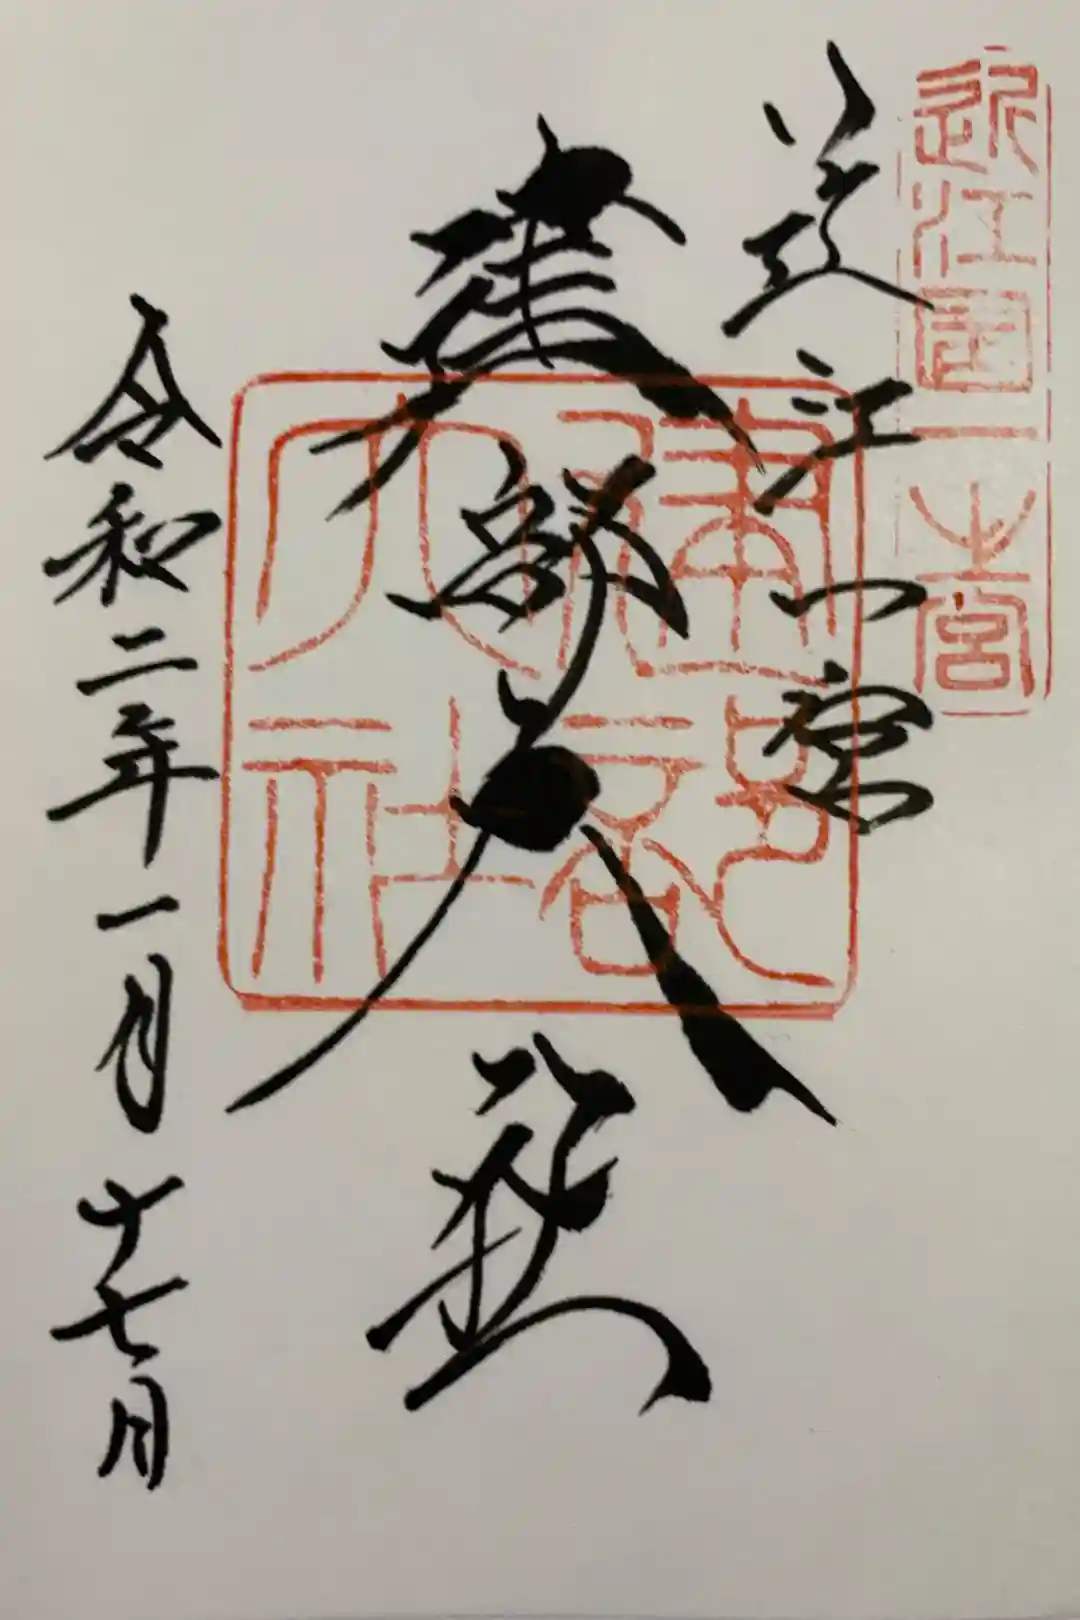 近江國一之宮
近江一宮
建部大社
建部大社
令和二年一月十七日